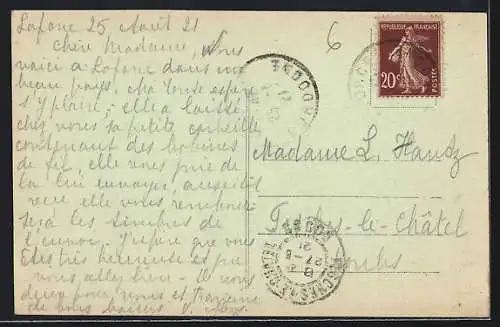 Lafosse 25, Août 21
Chère Madame, Nous
voici à Lafosse dans un
beau pays, Ma tante espère
s'y plaire; elle a laissé
chez vous sa petite corbeille
contenant des bobines
de fil, elle vous prie de
la lui envoyer, aussitôt
reçue elle vous rembourse
sera les timbres de
l'envoi. J'espère que vous
êtes très heureuse et que
vous allez bien. Il vous
deux pour vous et
de bons baisers
6
REPUBLIQUE FRANÇAISE
20c
POSTES
Madame L. Hantz
le-Châtel
Doubs
27-8
21